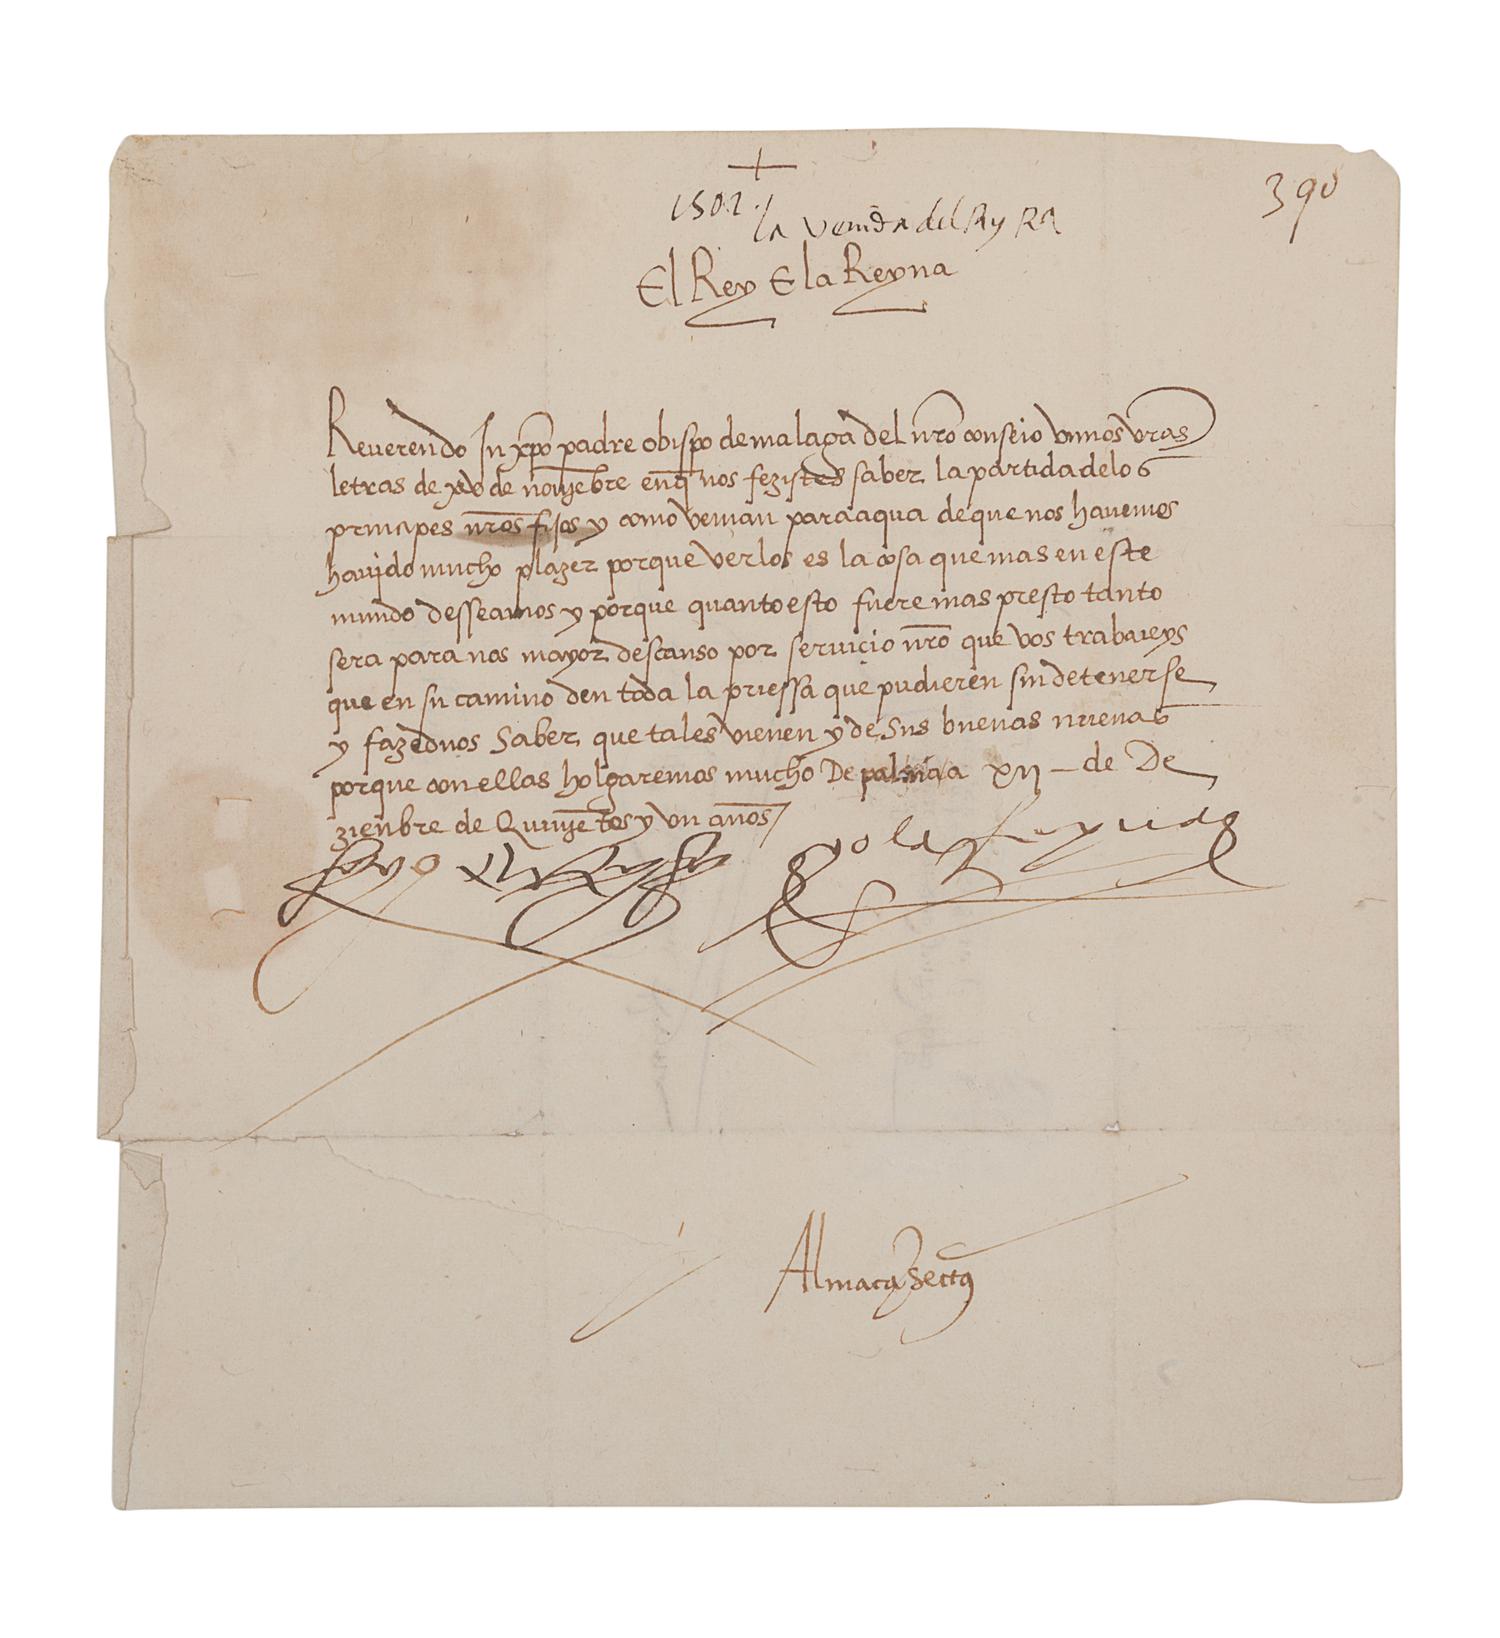 390
1502
la venida del Rey
El Rey E la Reyna
Reuerendo In xpo padre obispo de malaga del nro conseio vimos vras
letras de xv de nouyebre en q nos fezistes saber la partida de los
principes nros fijos y como venian para aqua de que nos hauemos
hauido mucho plazer porque verlos es la cosa que mas en este
mundo desseamos y porque quanto esto fuere mas presto tanto
sera para nos mayor descanso por seruicio nro que vos trabaieys
que en su camino den toda la priessa que pudieren sin detenerse
y fazednos saber que tales vienen y de sus buenas nueuas
porque con ellas holgaremos mucho De palma a xij de De
zienbre de Quinyetos y vn anos
yo el Rey
yo la Reyna
Almaça secrº